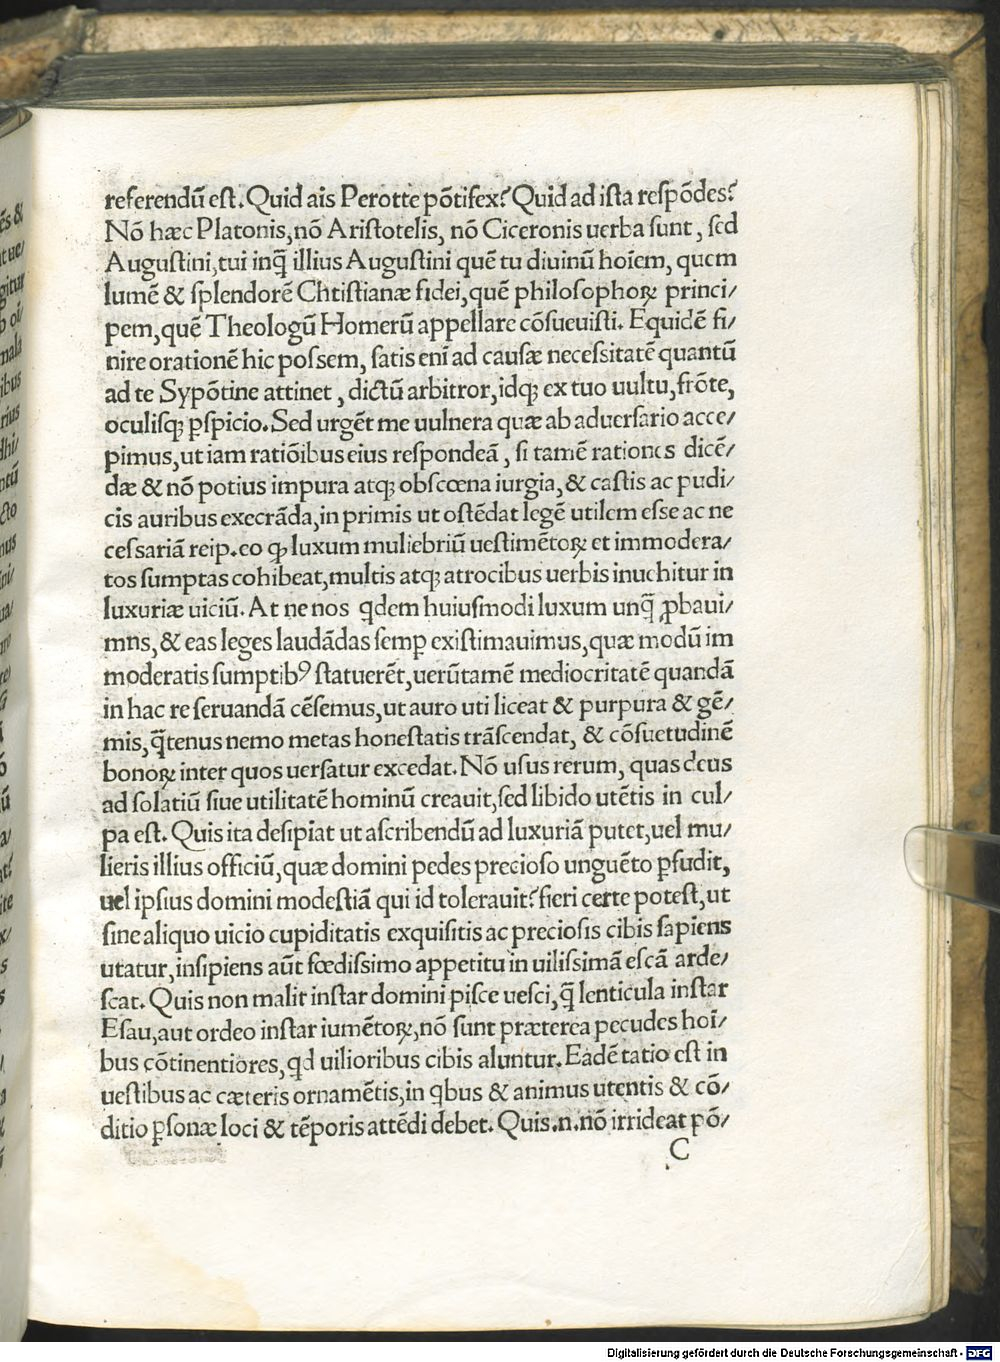 referendū est. Quid ais Perotte pōtifex? Quid ad ista respōdes?
Nō hæc Platonis, nō Aristotelis, nō Ciceronis uerba sunt, sed
Augustini, tui inq̄ illius Augustini quē tu diuinū hoīem, quem
lumē & splendorē Chtistianæ fidei, quē philosophoꝝ princi/
pem, quē Theologū Homerū appellare cōsueuisti. Equidē fi/
nire orationē hic possem, satis enī ad causæ necessitatē quantū
ad te Sypōtine attinet, dictū arbitror, idqꝫ ex tuo uultu, frōte,
oculisqꝫ ꝑspicio. Sed urgēt me uulnera quæ ab aduersario acce/
pimus, ut iam ratiōibus eius respondeā, si tamē rationes dicē/
dæ & nō potius impura atqꝫ obscœna iurgia, & castis ac pudi/
cis auribus execrāda, in primis ut ostēdat legē utilem esse ac ne
cessariā reip. eo ꝙ luxum muliebriū uestimētoꝝ et immodera/
tos sumptas cohibeat, multis atqꝫ atrocibus uerbis inuehitur in
luxuriæ uiciū. At ne nos qdem huiusmodi luxum unq̄ ꝓbaui/
mns, & eas leges laudādas semꝑ existimauimus, quæ modū im
moderatis sumptibꝰ statuerēt, uerūtamē mediocritatē quandā
in hac re seruandā cēsemus, ut auro uti liceat & purpura & gē/
mis, q̄tenus nemo metas honestatis trāscendat, & cōsuetudinē
bonoꝝ inter quos uersatur excedat. Nō usus rerum, quas deus
ad solatiū siue utilitatē hominū creauit, sed libido utētis in cul/
pa est. Quis ita desipiat ut ascribendū ad luxuriā putet, uel mu/
lieris illius officiū, quæ domini pedes precioso unguēto ꝑfudit,
uel ipsius domini modestiā qui id tolerauit? fieri certe potest, ut
sine aliquo uicio cupiditatis exquisitis ac preciosis cibis sapiens
utatur, insipiens aūt fœdissimo appetitu in uilissimā escā arde/
scat. Quis non malit instar domini pisce uesci, q̄ lenticula instar
Esau, aut ordeo instar iumētoꝝ, nō sunt præterea pecudes hoī/
bus cōtinentiores, qd uilioribus cibis aluntur. Eadē tatio est in
uestibus ac cæteris ornamētis, in qbus & animus utentis & cō/
ditio ꝑsonæ loci & tēporis attēdi debet. Quis .n. nō irrideat pō/
C
Digitalisierung gefördert durch die Deutsche Forschungsgemeinschaft - DFG